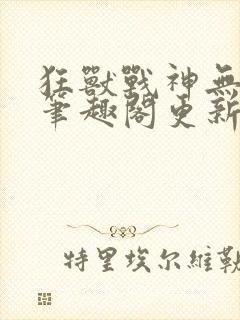 狂獸戰神無
筆趣閣更新
特里埃尔維勒